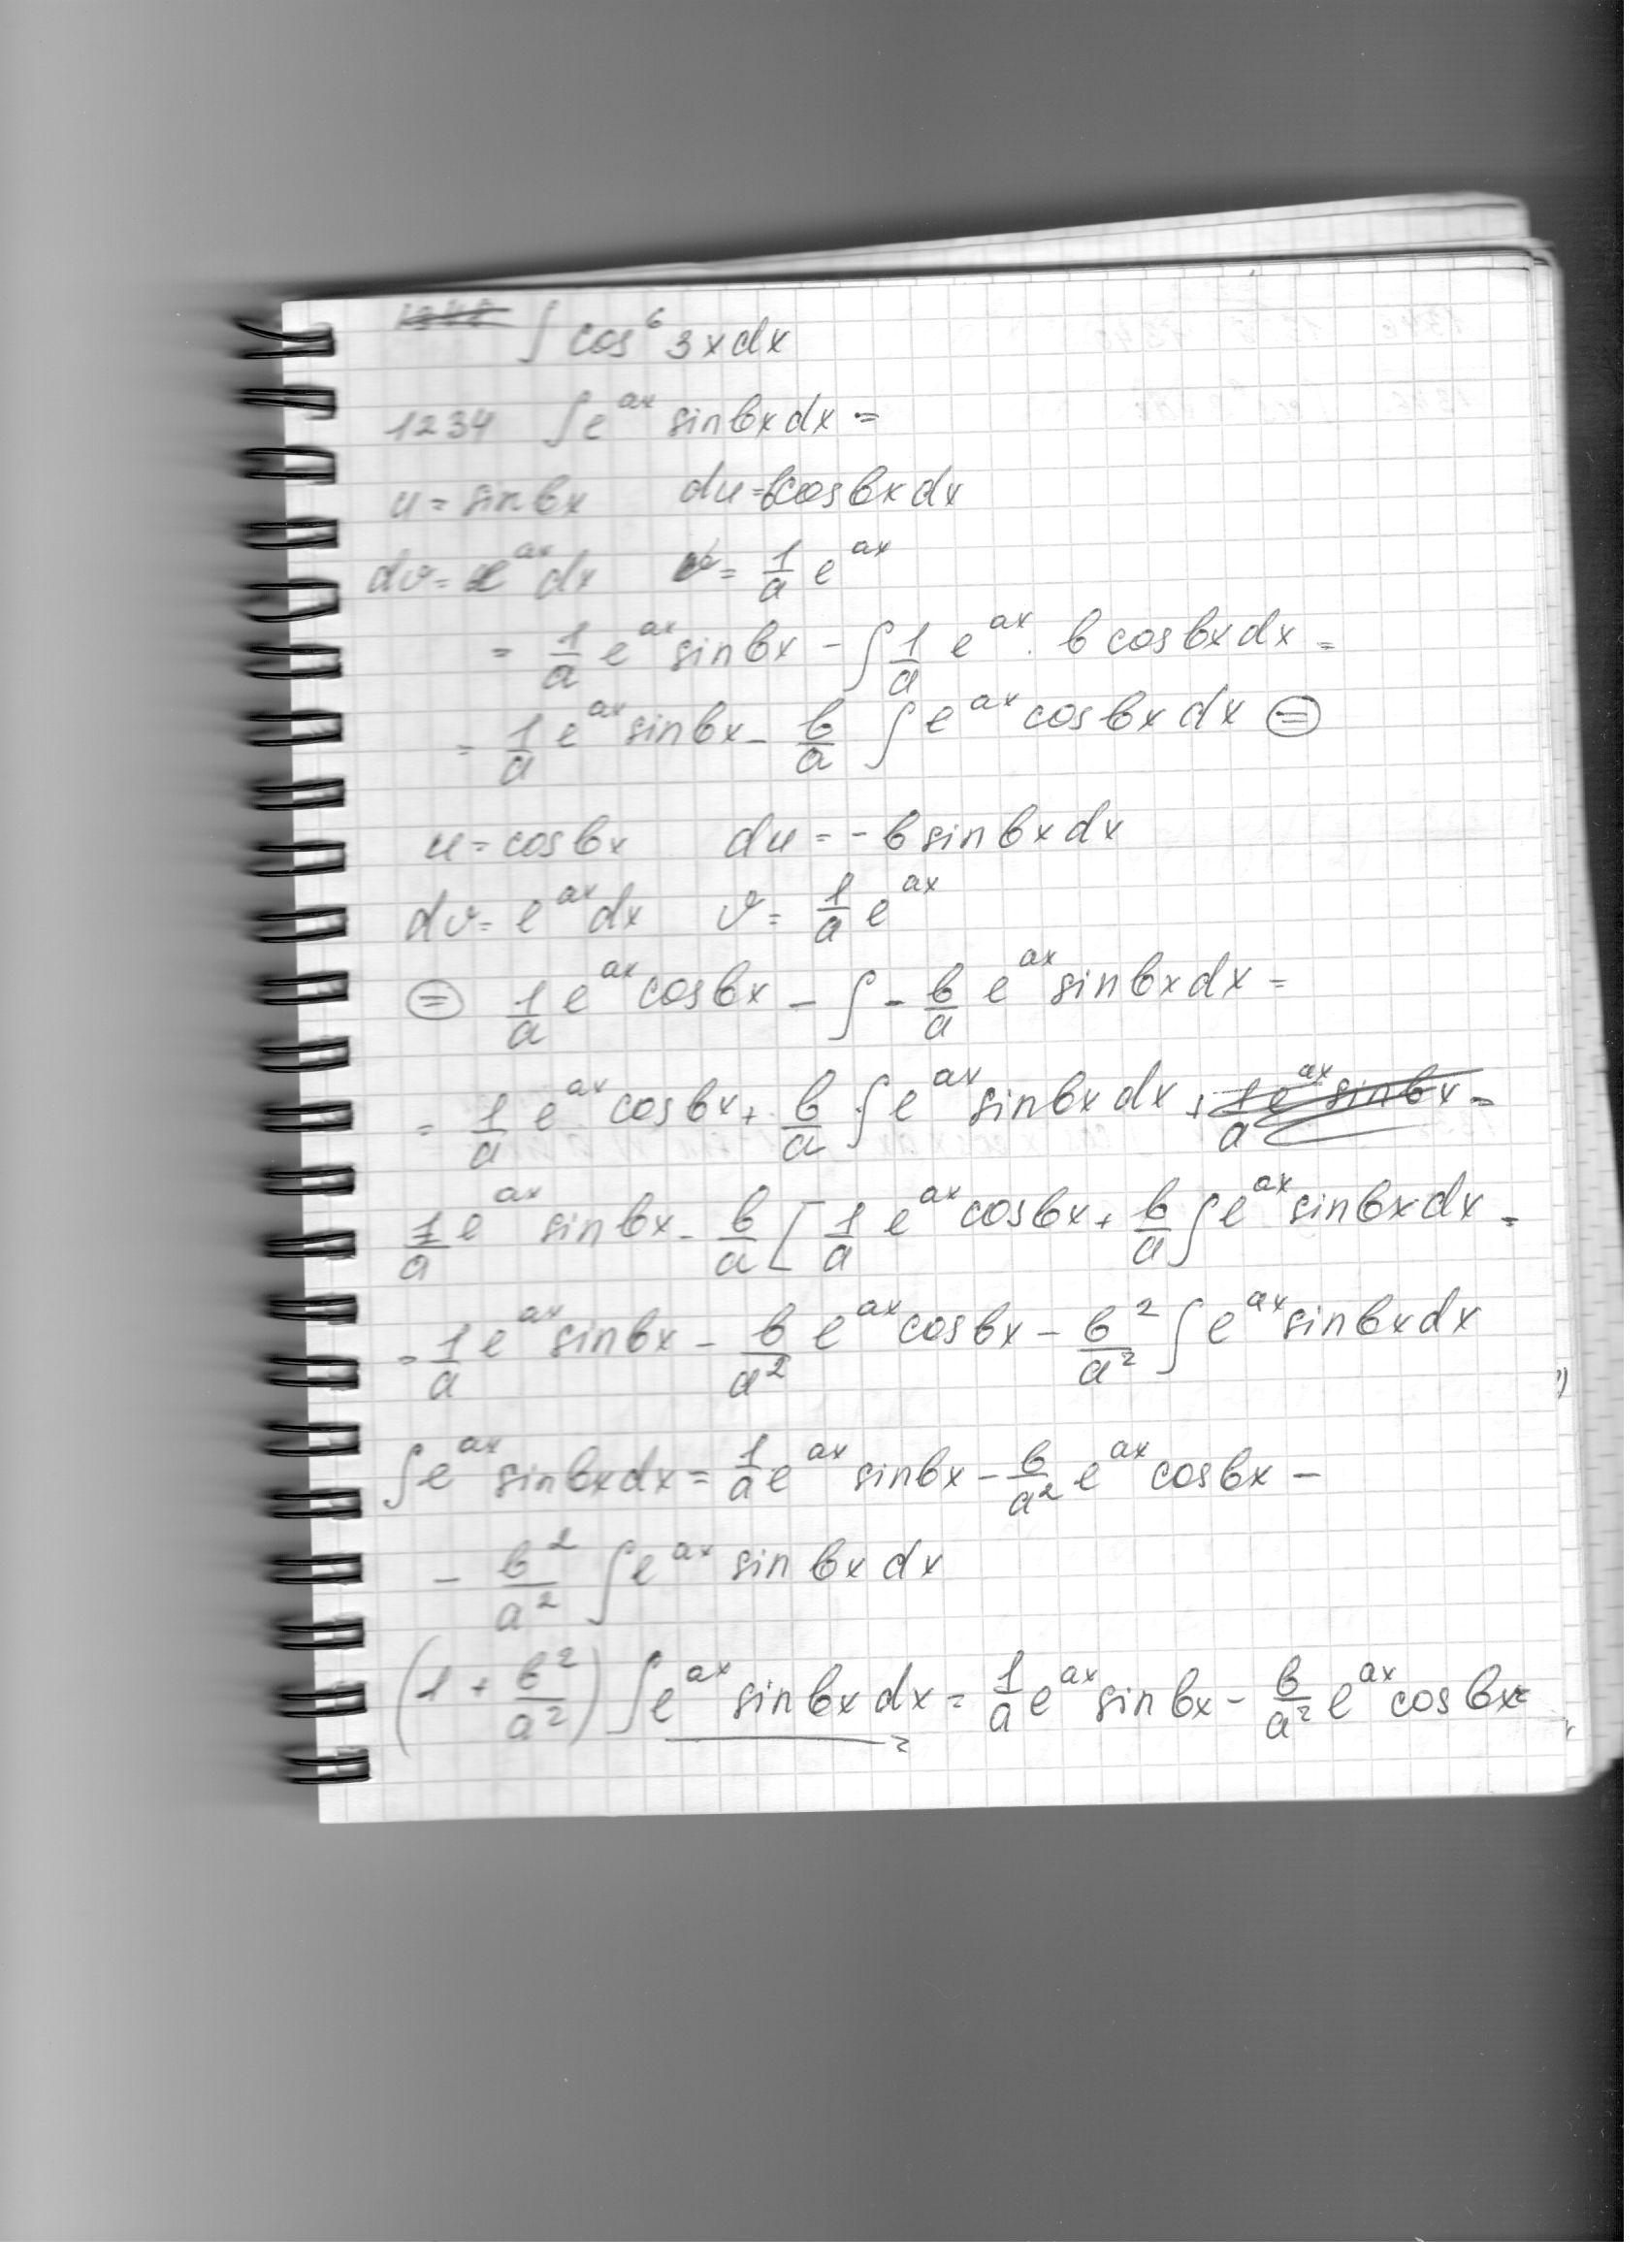 ∫ cos⁶ 3x dx
1234 ∫ e^{ax} sin bx dx =
u = sin bx du = b cos bx dx
dv = e^{ax} dx v = 1/a e^{ax}
= 1/a e^{ax} sin bx - ∫ 1/a e^{ax} · b cos bx dx =
= 1/a e^{ax} sin bx - b/a ∫ e^{ax} cos bx dx ⊜
u = cos bx du = - b sin bx dx
dv = e^{ax} dx v = 1/a e^{ax}
⊜ 1/a e^{ax} cos bx - ∫ - b/a e^{ax} sin bx dx =
= 1/a e^{ax} cos bx + b/a ∫ e^{ax} sin bx dx + 1/a e^{ax} sin bx =
1/a e^{ax} sin bx - b/a [ 1/a e^{ax} cos bx + b/a ∫ e^{ax} sin bx dx =
= 1/a e^{ax} sin bx - b/a² e^{ax} cos bx - b²/a² ∫ e^{ax} sin bx dx
∫ e^{ax} sin bx dx = 1/a e^{ax} sin bx - b/a² e^{ax} cos bx -
- b²/a² ∫ e^{ax} sin bx dx
(1 + b²/a²) ∫ e^{ax} sin bx dx = 1/a e^{ax} sin bx - b/a² e^{ax} cos bx =